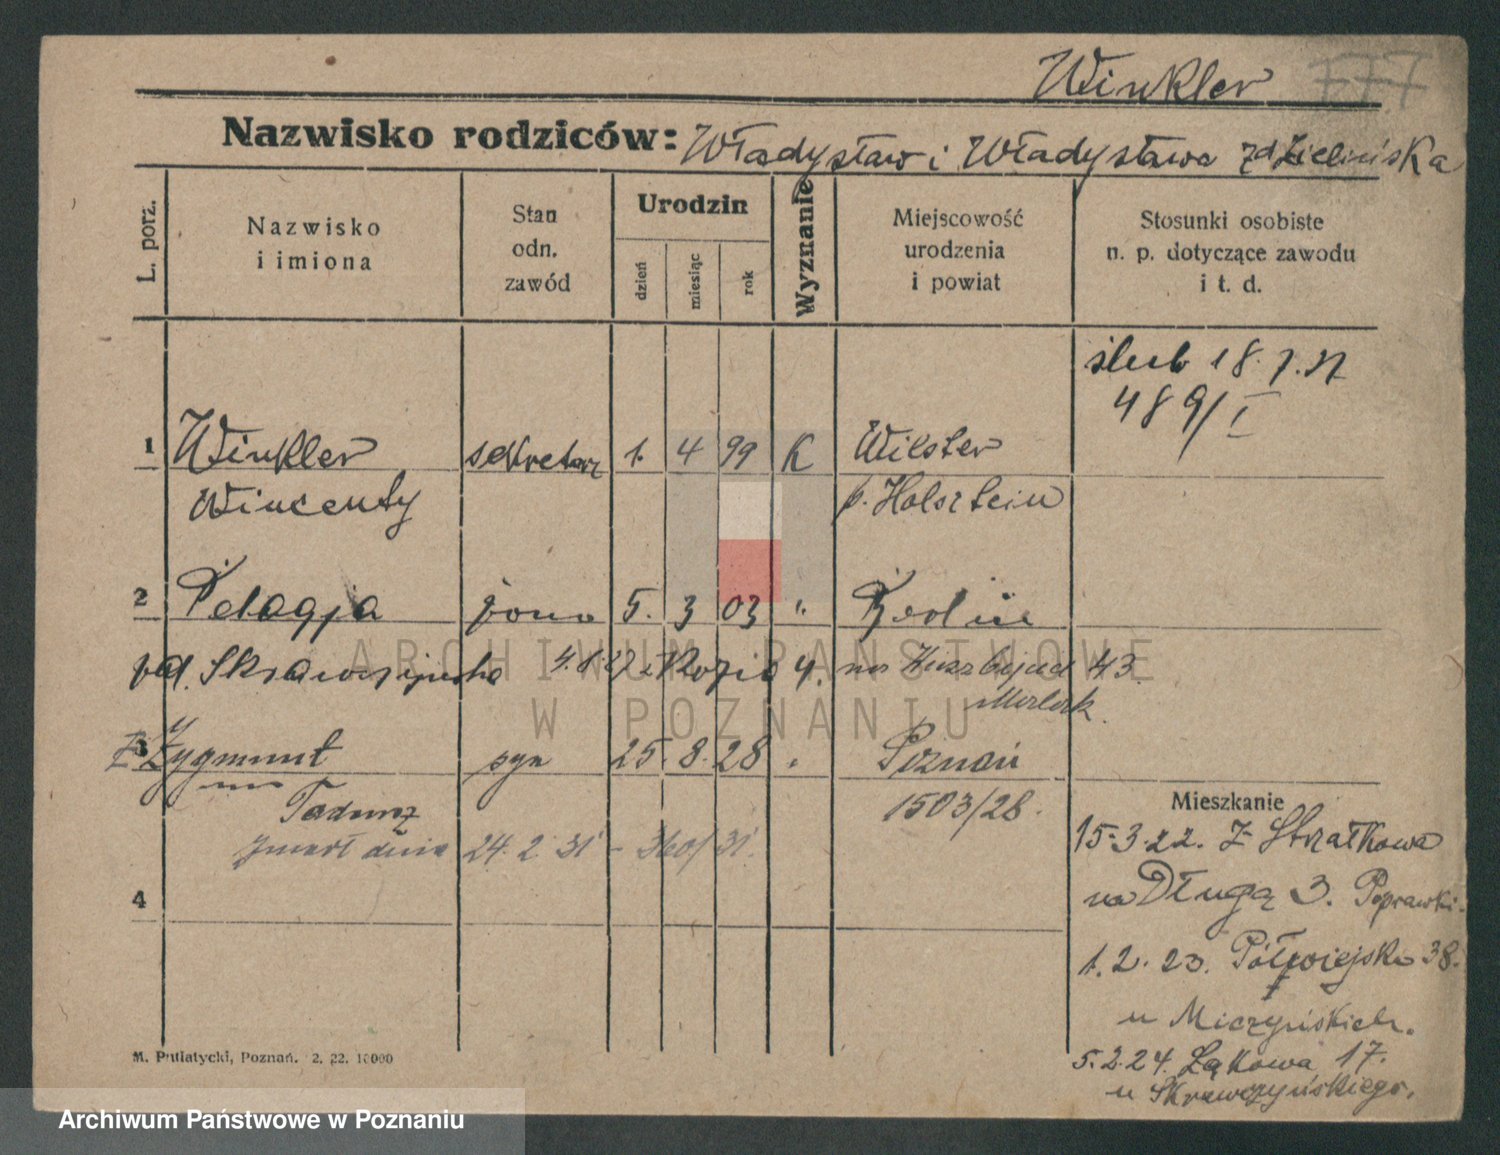 Winkler 777
Nazwisko rodziców: Władysław i Władysława zd Zielińska
L. porz.
Nazwisko i imiona
Stan odn. zawód
Urodzin
dzień
miesiąc
rok
Wyznanie
Miejscowość urodzenia i powiat
Stosunki osobiste n. p. dotyczące zawodu i t. d.
ślub 18.7.27
489/I
1 Winkler sekretarz 1. 4 99 K Wilster
Wincenty p. Holsztein
2 Pelagja żona 5. 3 03 "
zd. Skrawczyńska 4.8.27 z 43.
3 Zygmunt syn 25. 8. 28 " Poznań
Tadeusz 1503/28.
zmarł dnia 24. 2 31 - 360/31.
4
Mieszkanie
15.3.22. z Strzałkowa
na Długą 3. Poprawki.
1.2.23. Półwiejska 38.
u Miczyńskich.
5.2.24. Łąkowa 17.
u Skrawczyńskiego.
M. Putiatycki, Poznań. 2. 22. 10000
ARCHIWUM PAŃSTWOWE
W POZNANIU
Archiwum Państwowe w Poznaniu